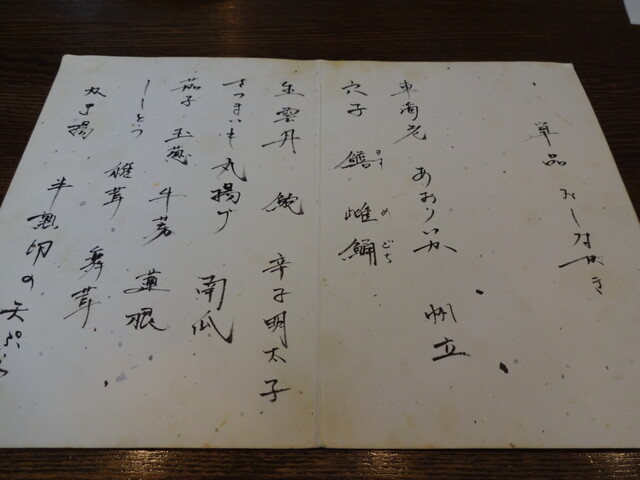 単品 おしながき
車海老 あおりいか 帆立
穴子 鱚 きす 雌鯒 めごち
生雲丹 鮑 辛子明太子
さつまいも丸揚げ 南瓜
茄子 玉葱 牛蒡 蓮根
ししとう 椎茸 舞茸
丸十揚 半熟卵の天ぷら